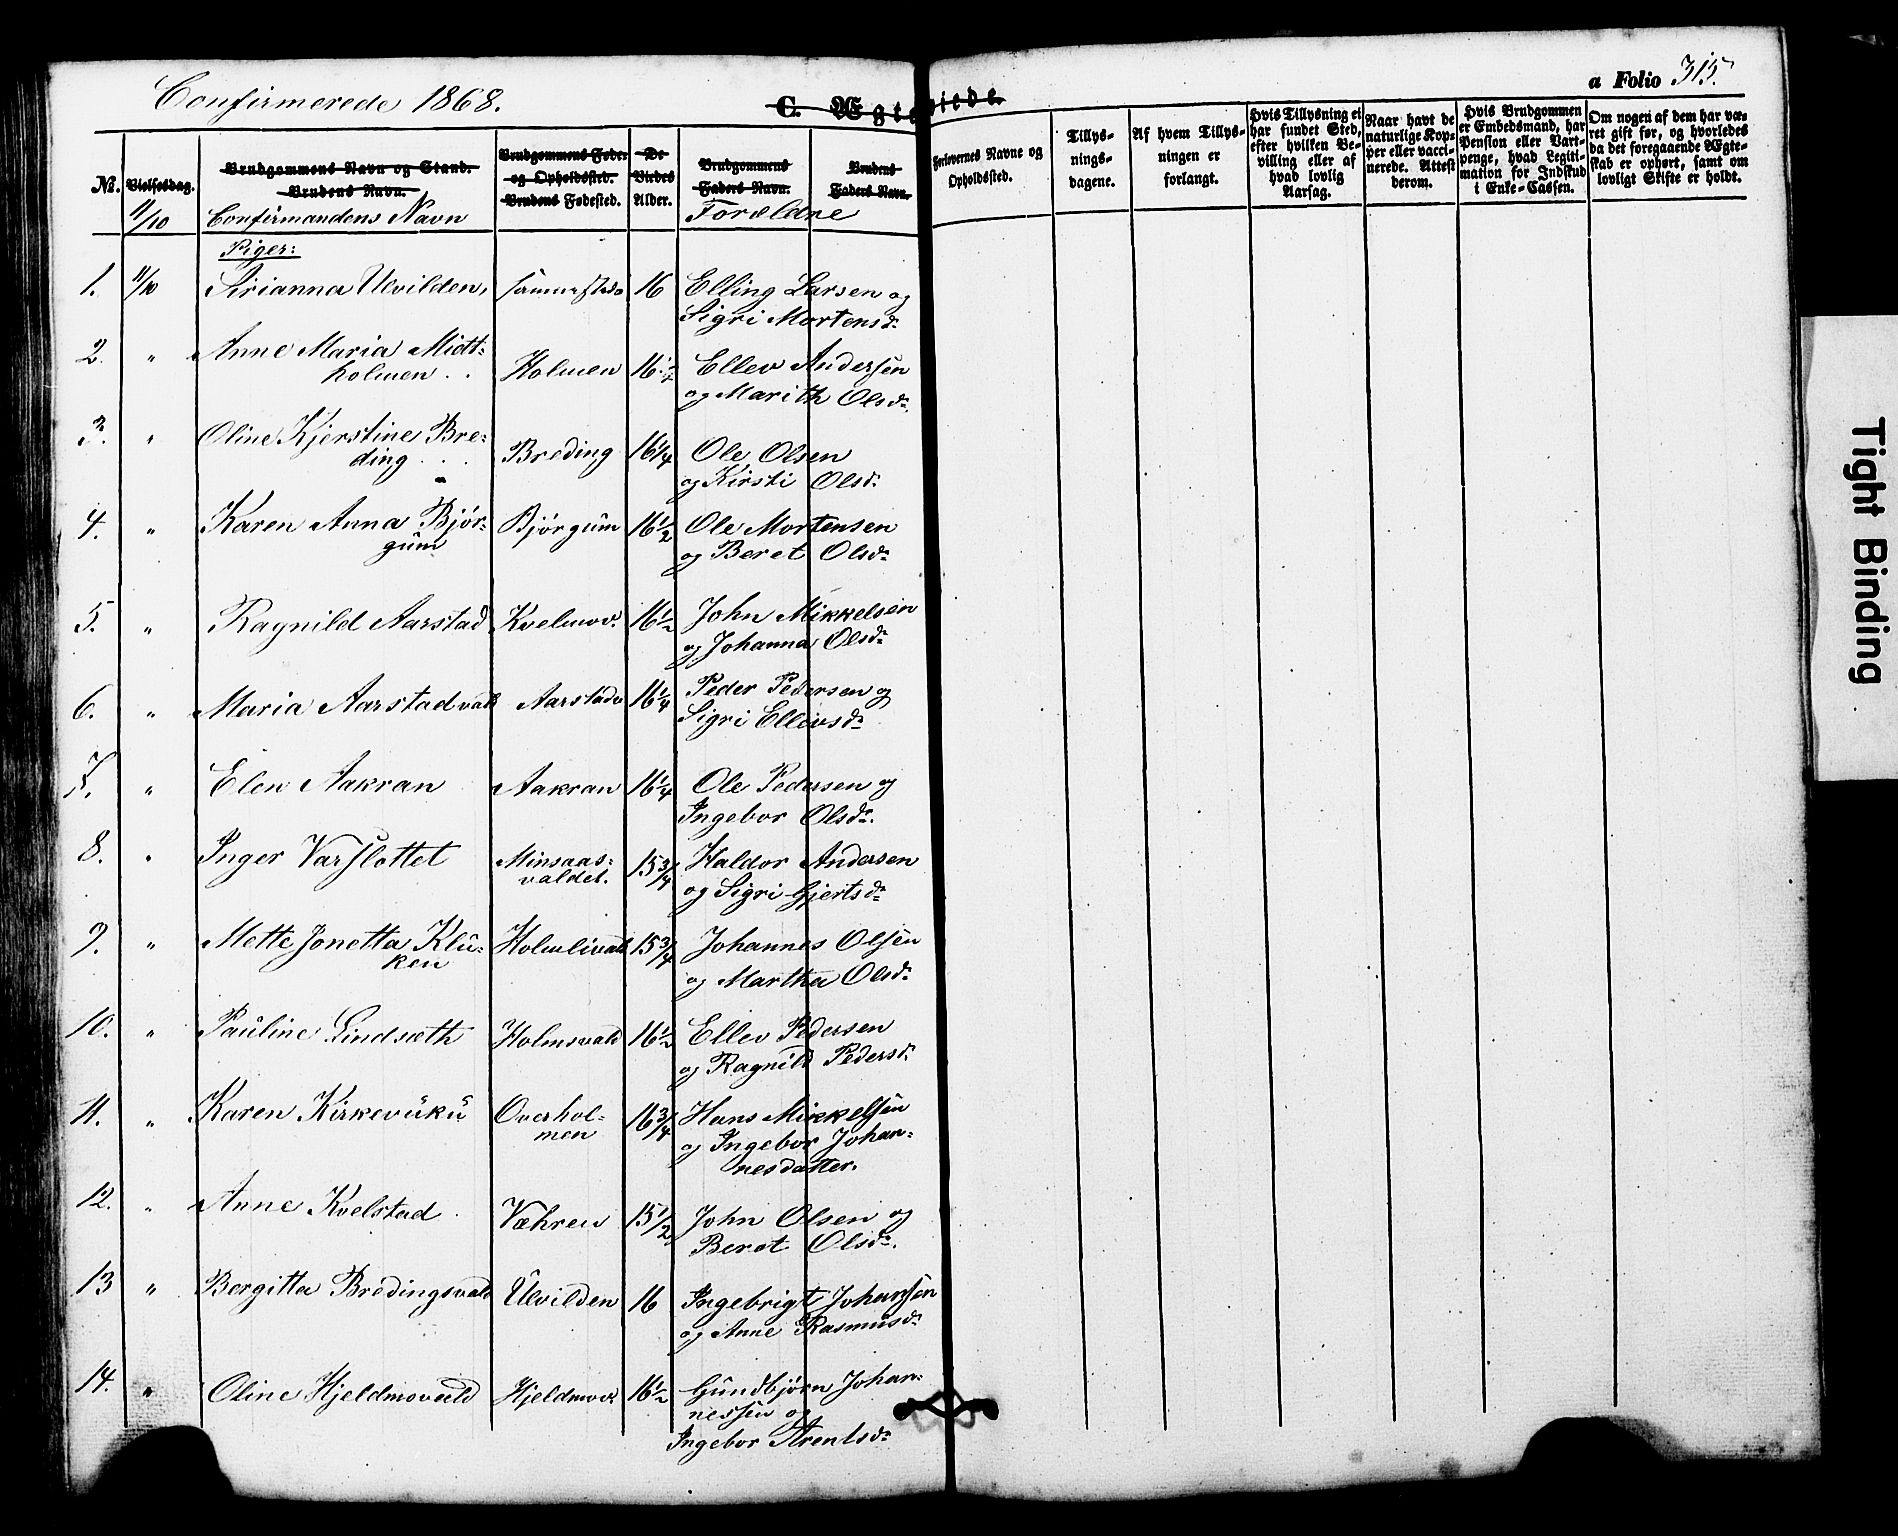 Confirmerede 1868.
C. Ægteviede.
a Folio 315.
No.
Vielsesdag.
11/10
Brudgommens Navn og Stand.
Brudens Navn.
Confirmandens Navn
Brudgommens Føde-
og Opholdssted.
Brudens Fødested.
De
Viedes
Alder.
Brudgommens
Faders Navn.
Brudens
Faders Navn.
Forældre
Forlovernes Navne og
Opholdssted.
Tillys-
nings-
dagene.
Af hvem Tillys-
ningen er
forlangt.
Hvis Tillysning ei
har fundet Sted,
efter hvilken Be-
villing eller af
hvad lovlig
Aarsag.
Naar havt de
naturlige Kop-
per eller vacci-
nerede. Attest
derom.
Hvis Brudgommen
er Embedsmand, har
Pension eller Vart-
penge, hvad Legiti-
mation for Indskud
i Enke-Cassen.
Om nogen af dem har væ-
ret gift før, og hvorledes
da det foregaaende Ægte-
skab er ophørt, samt om
lovligt Skifte er holdt.
Piger:
1. 11/10 Sirianna Ulvilden, sammesteds 16 Elling Larsen og
Sigri Mortensdr
2. " Anne Maria Midt-
holmen . . Holmen 16 1/4 Ellev Andersen
og Marith Olsdr.
3. " Oline Kjerstine Bre-
ding . . . Breding 16 1/4 Ole Olsen
og Kirsti Olsdr
4. " Karen Anna Bjør-
gum Bjørgum 16 1/2 Ole Mortensen
og Beret Olsdr
5. " Ragnild Aarstad Kvelmov. 16 1/2 John Mikkelsen
og Johanna Olsdr
6. " Maria Aarstadvald Aarstadv 16 1/4 Peder Pedersen og
Sigri Ellevsdr
7. " Elen Aakran Aakran 16 1/4 Ole Pedersen og
Ingebor Olsdr.
8. " Inger Varslottet Minsaas-
valdet. 15 3/4 Haldor Andersen
og Sigri Gjertsdr
9. " Mette Jonetta Klu-
ken Holmlivald 15 3/4 Johannes Olsen
og Martha Olsdr
10. " Pauline Lindsæth Holmsvald 16 1/2 Ellev Pedersen
og Ragnild Pedersdr
11. " Karen Kirkevuku Overhol-
men 16 3/4 Hans Mikkelsen
og Ingebor Johan-
nesdatter.
12. " Anne Kvelstad Væhren 15 1/2 John Olsen og
Beret Olsdr.
13 " Bergitta Bredingsvald Ulvilden 16 Ingebrigt Johansen
og Anne Rasmusdr
14. " Oline Hjeldmovald Hjeldmov. 16 1/2 Gundbjørn Johan-
nessen og
Ingebor Arentsdr
Tight Binding